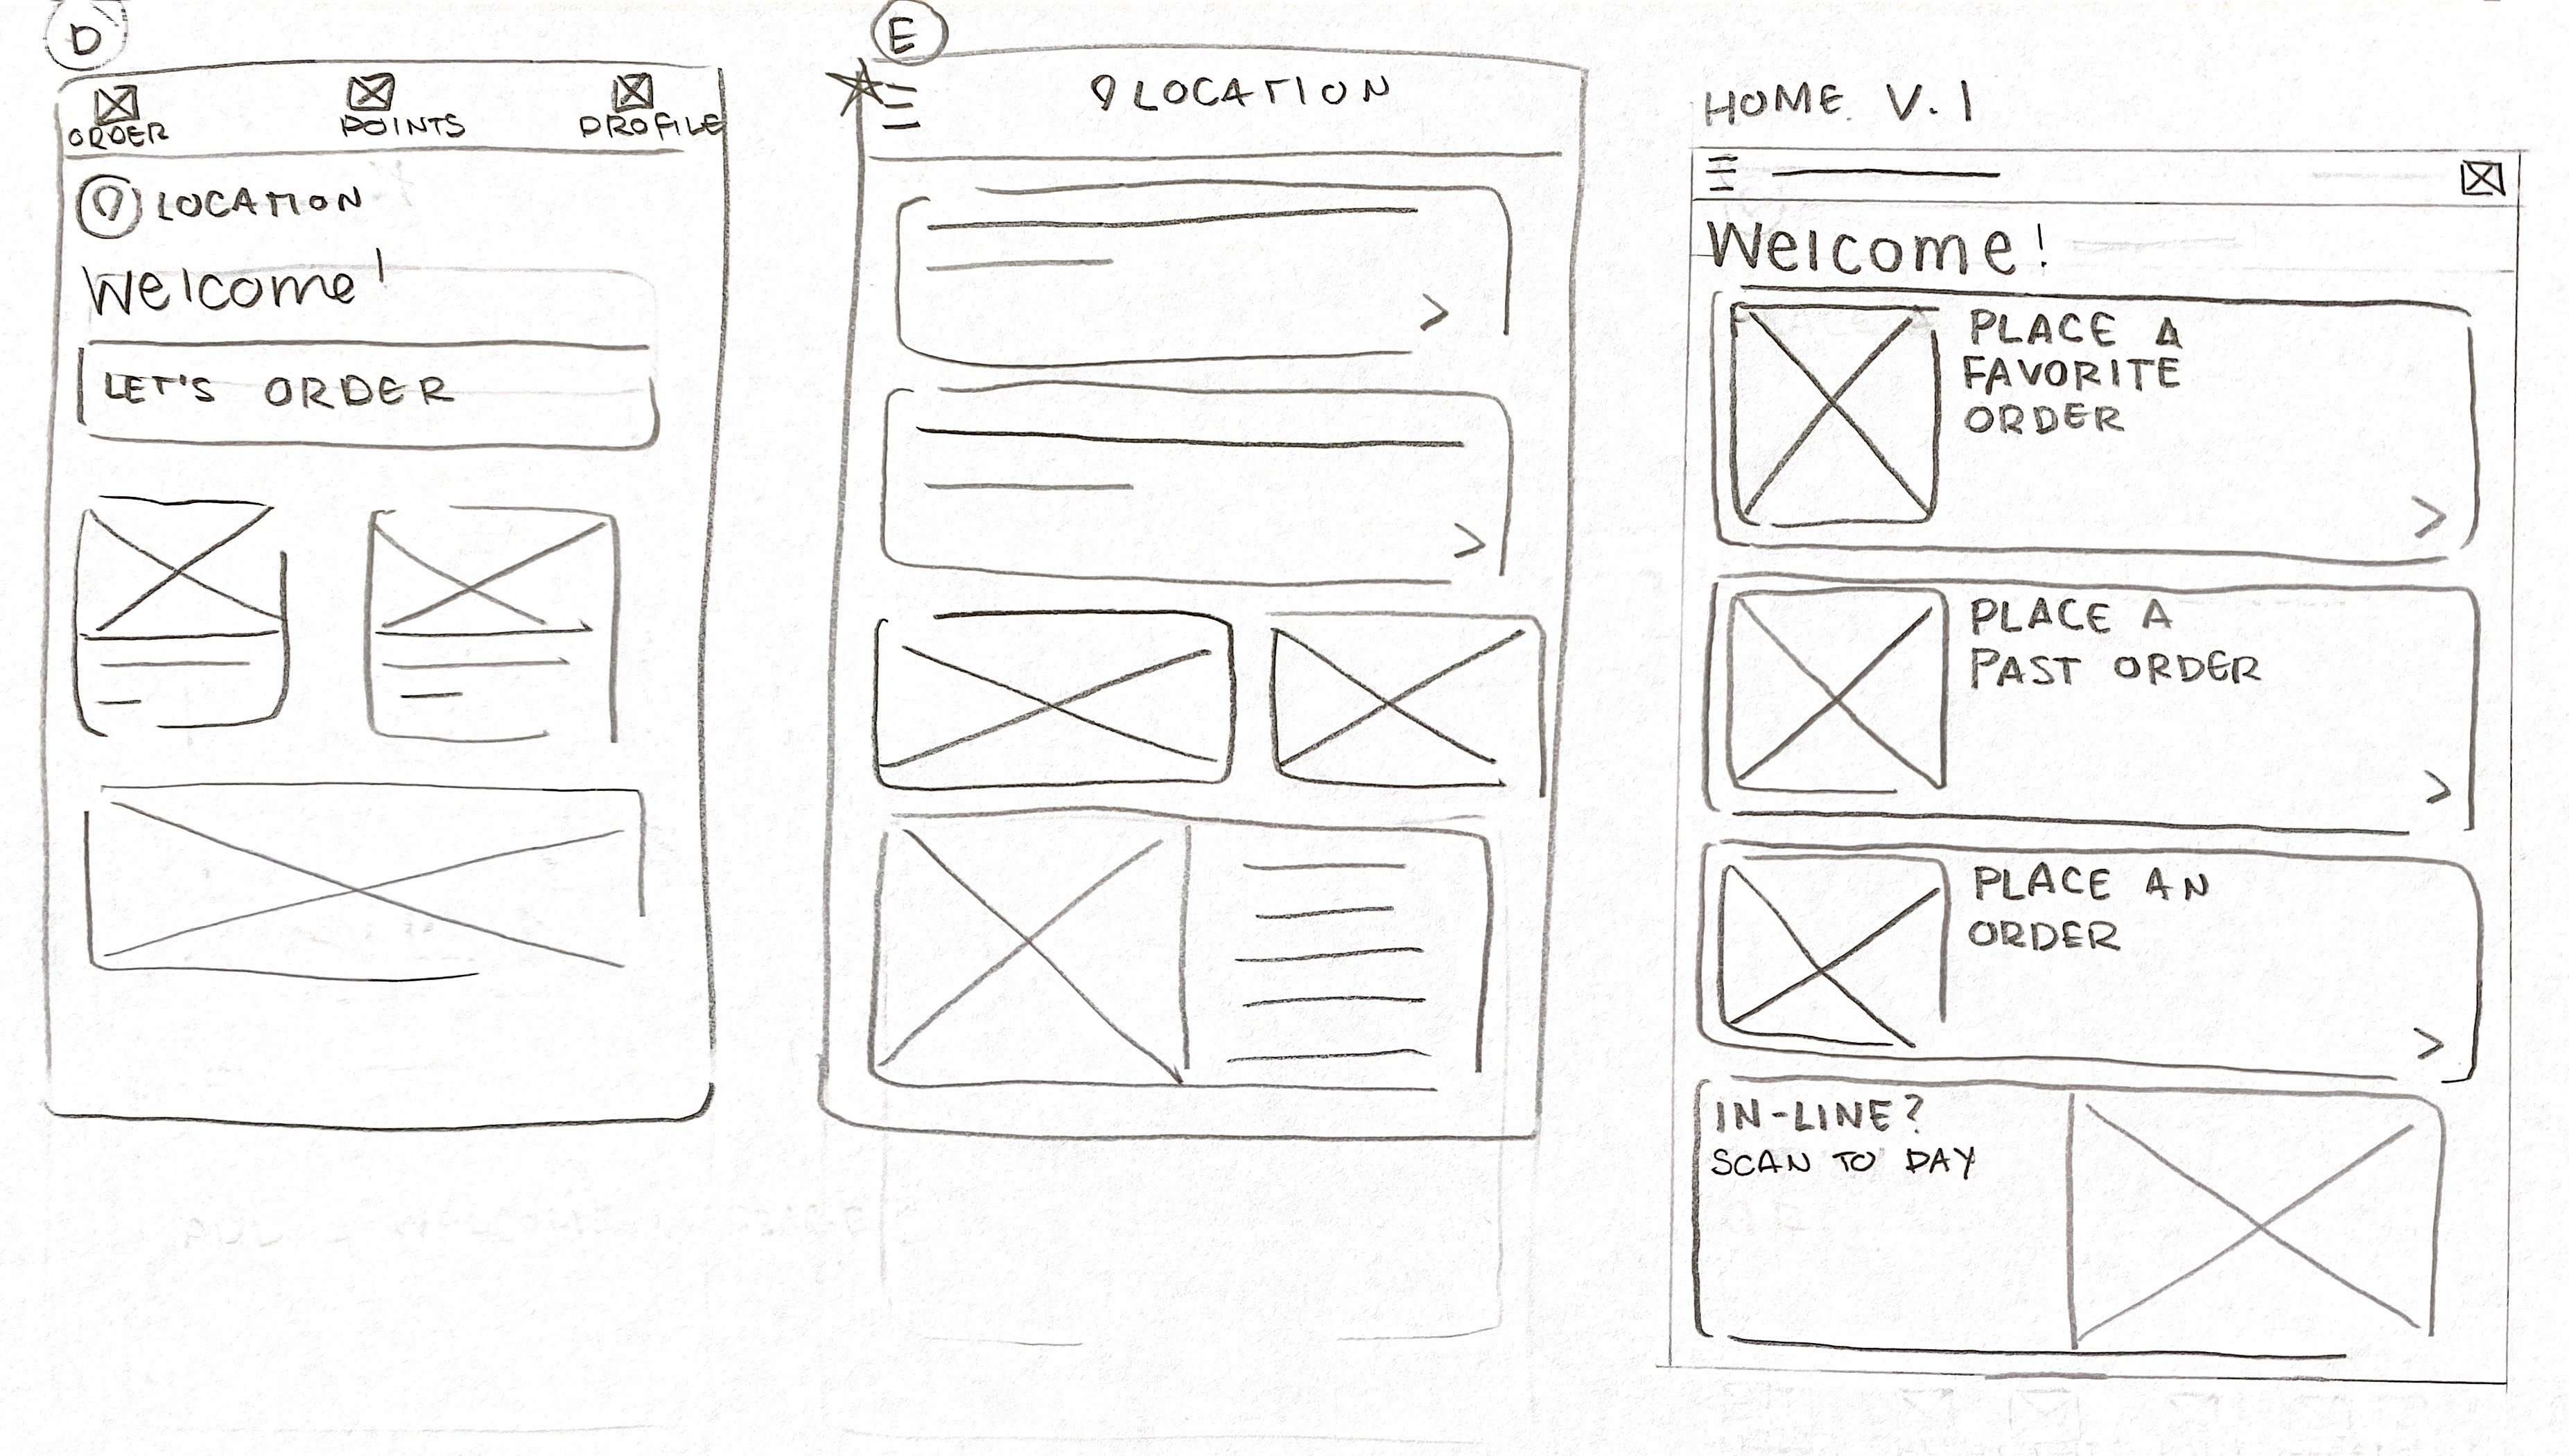 D
ORDER
POINTS
PROFILE
LOCATION
Welcome!
LET'S ORDER
E
LOCATION
HOME V.1
Welcome!
PLACE A
FAVORITE
ORDER
PLACE A
PAST ORDER
PLACE AN
ORDER
IN-LINE?
SCAN TO PAY